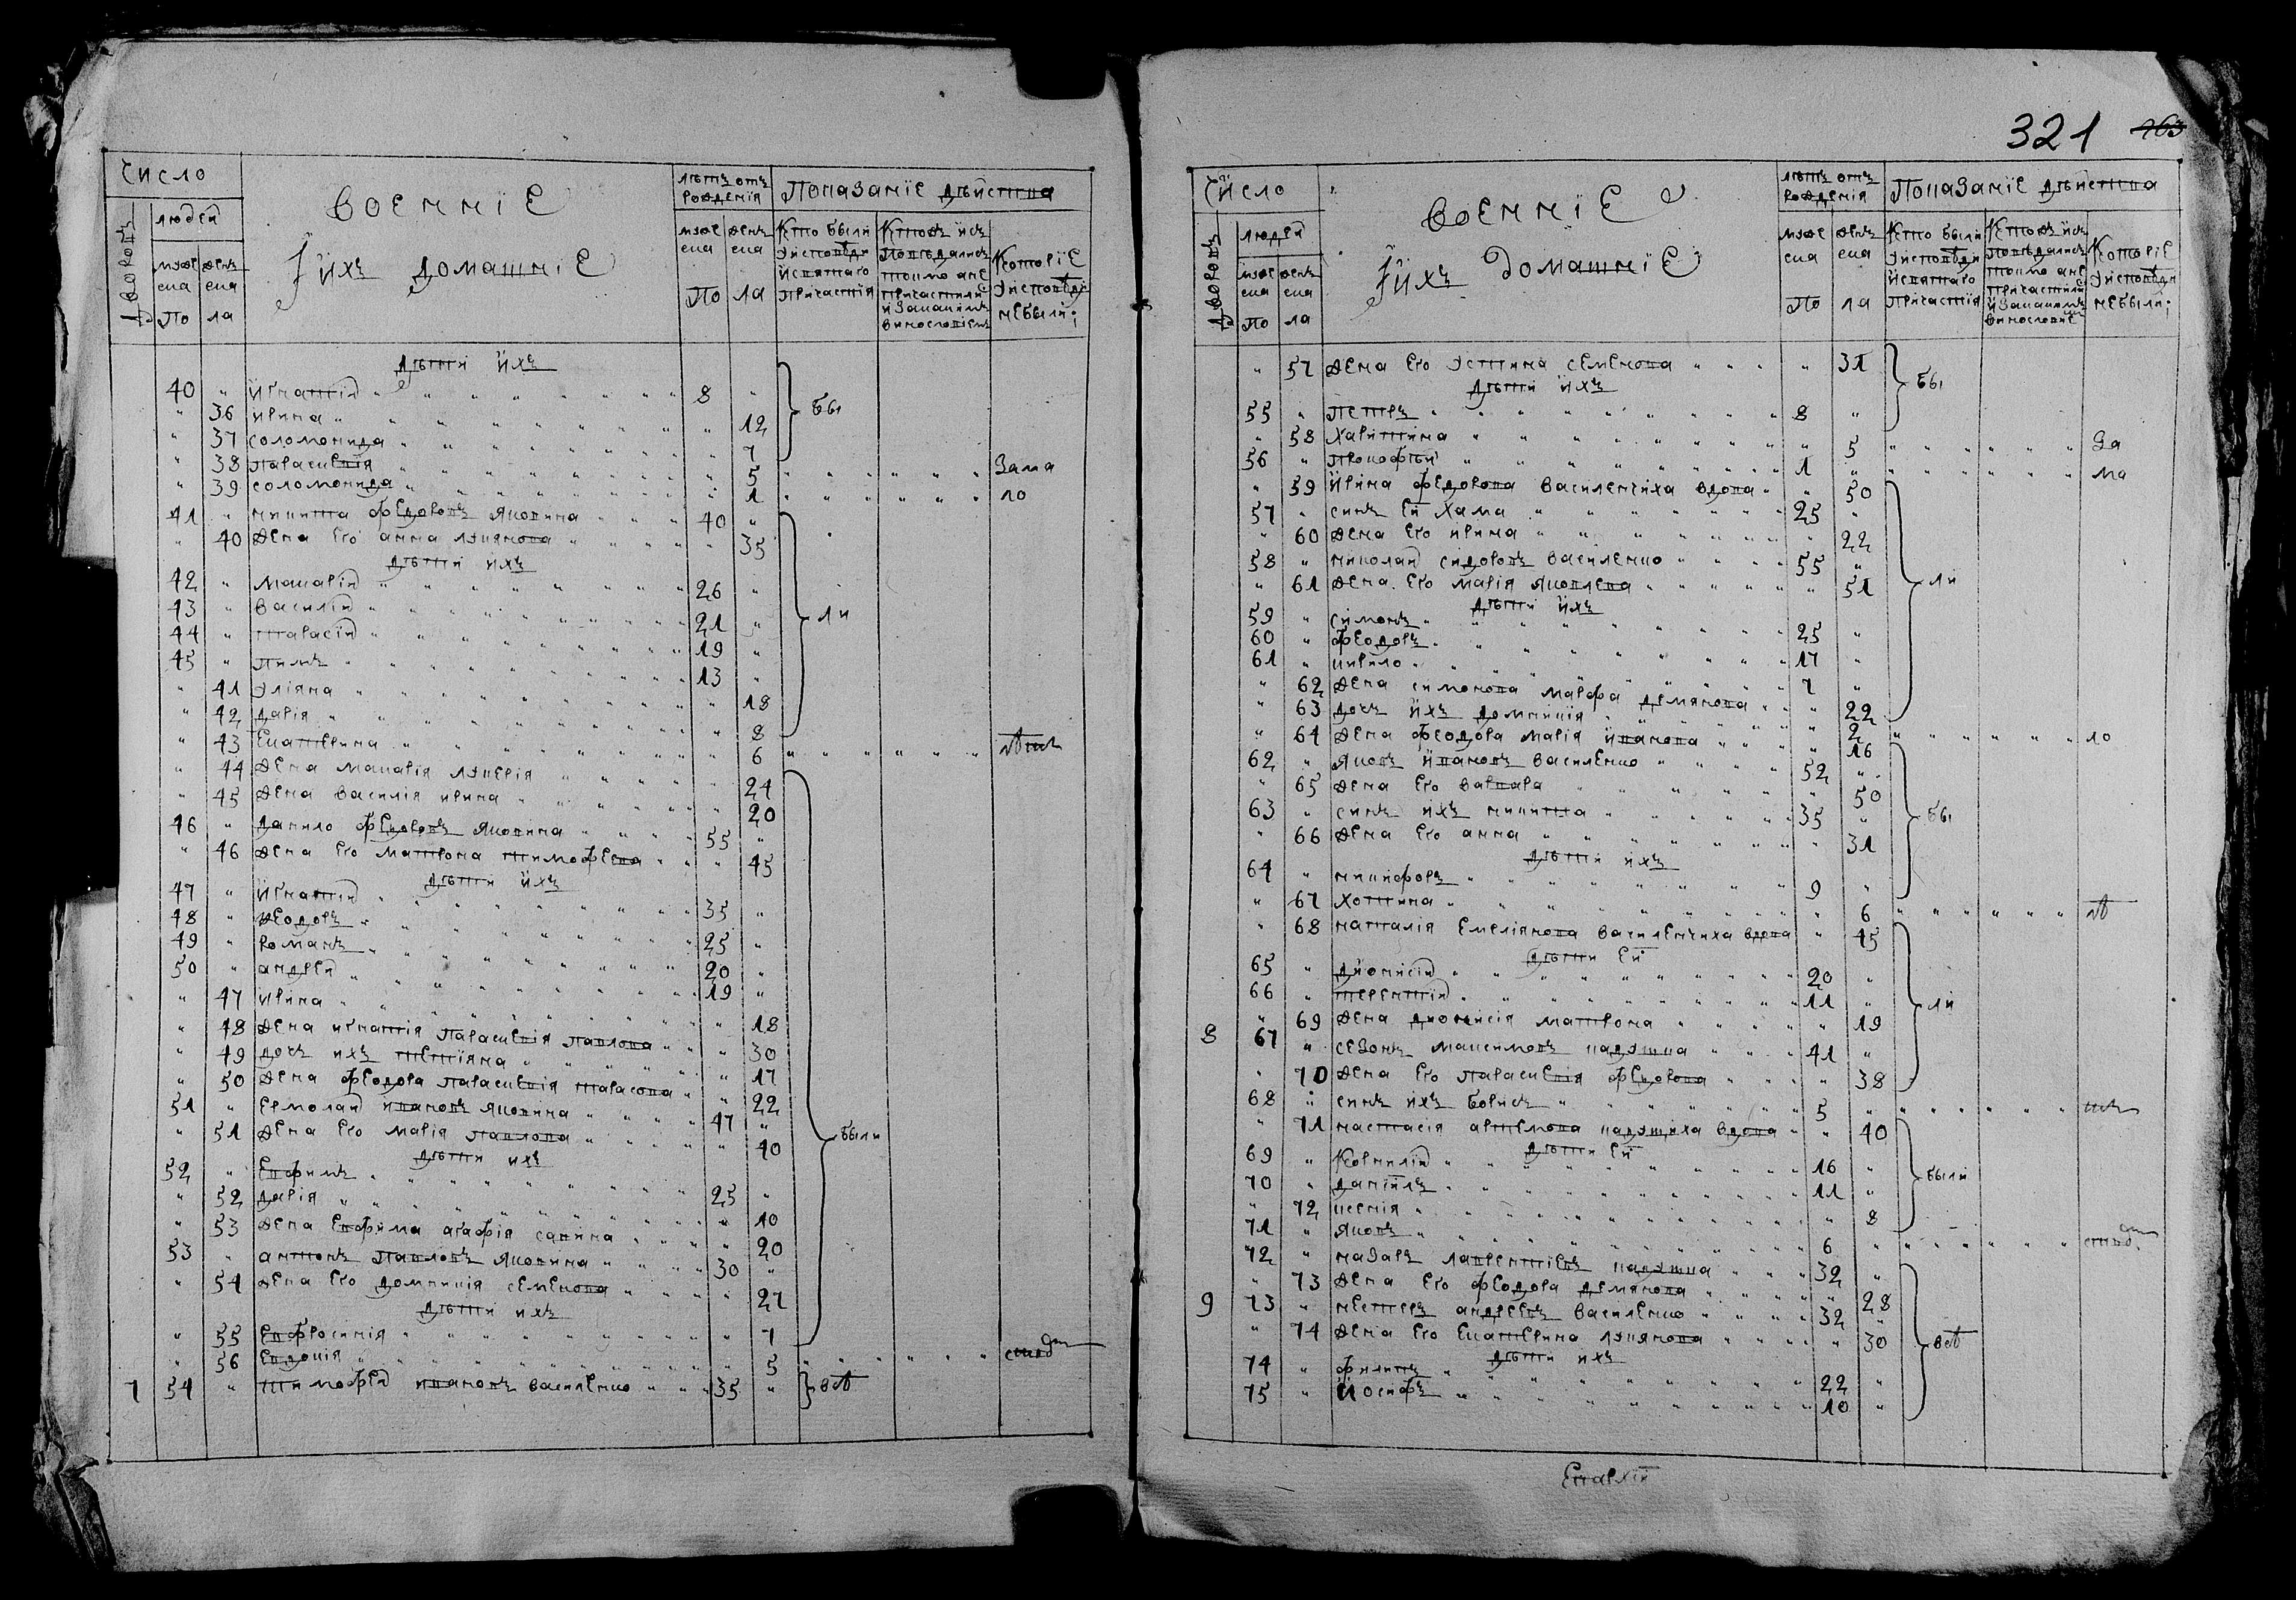 Число
Дворовъ
людей
мужеска
женска
По ла
военние
И ихъ домашние
лѣтъ отъ рождения
мужеска
женска
По ла
Показание действа
Кто были у исповѣди и святаго Причастия
Кто жъ исповѣдались токмо а не причастились и за какимъ винословиемъ
Которіе у исповѣди не были
дѣти ихъ
40 " Игнатій " 8 "
" 36 Ирина " " 12 бы
" 37 соломонида " " 7
" 38 Параскевія " " 5 " зама
" 39 соломонида " " 1 " ло
41 " никита федоровъ Яковина " 40 "
" 40 жена его анна лукянова " " 35
дѣти ихъ
42 " Макарій " 26 "
43 " василій " 21 " ли
44 " тарасій " 19 "
45 " Пимъ " 13 "
" 41 Уліяна " " 18
" 42 дарія " " 8
" 43 Екатерина " " 6 " лѣтъ
" 44 жена Макарія лукерія " " 24
" 45 жена василія ирина " " 20
46 " данило федоровъ Яковина " 55 "
" 46 жена его матрона тимофеева " " 45
дѣти ихъ
47 " Игнатій " 35 "
48 " феодоръ " 25 "
49 " романъ " 20 "
50 " андрей " 19 "
" 47 ирина " " 18
" 48 жена игнатія Параскевія Павлова " " 30
" 49 дочъ ихъ тетіяна " " 17
" 50 жена феодора Параскевія тарасова " " 22
51 " Ермолай ивановъ Яковина " 47 "
" 51 жена его марія Павлова " " 40 были
дѣти ихъ
52 " Евфимъ " 25 "
" 52 дарія " " 10
" 53 жена Евфима агафія савина " " 20
53 " антонъ Павловъ Яковина " 30 "
" 54 жена его домникія семенова " " 27
дѣти ихъ
" 55 Евфросинія " " 7
" 56 Евдокія " " 5 "
7 54 " тимофей ивановъ василенко " 35 " } всѣ
321 463
Число
Дворовъ
людей
мужеска
женска
По ла
военние
И ихъ домашние
лѣтъ отъ рождения
мужеска
женска
По ла
Показание действа
Кто были у исповѣди и святаго Причастия
Кто жъ исповѣдались токмо а не причастились и за какимъ винословие
Которіе у исповѣди не были
" 57 жена его Устина семенова " " 31
дѣти ихъ бы
55 " Петръ " 8 "
" 58 Харитина " " 5 " за
56 " Прокофей " 1 " " ма
" 59 ирина федорова василенчиха вдова " " 50
57 " синъ ей Хама " 25 "
" 60 жена его ирина " " 22
58 " николай сидоровъ василенко " 55 "
" 61 жена его марія Яковлева " " 51 ли
дѣти ихъ
59 " симонъ " 25 "
60 " феодоръ " 17 "
61 " кирило " 7 "
" 62 жена симонова марфа демянова " " 22
" 63 дочъ ихъ домникія " " 2 " ло
" 64 жена феодора марія иванова " " 16
62 " Яковъ ивановъ василенко " 52 "
" 65 жена его варвара " " 50
63 " синъ ихъ никита " 35 " бы
" 66 жена его анна " " 31
дѣти ихъ
64 " никифоръ " 9 "
" 67 хотина " " 6 " лѣ
" 68 наталія Емеліянова василенчиха вдова " 45
дѣти ей
65 " дионисій " 20 "
66 " терентій " 11 " ли
" 69 жена дионисія матрона " " 19
8 67 " сезонъ максимовъ кадушка " 41 "
" 70 жена его параскевія федорова " " 38
68 " синъ ихъ борисъ " 5 " "
" 71 настасія артемова кадущиха вдова " " 40
дѣти ей
69 " Корнилій " 16 "
70 " даніилъ " 11 " были
" 72 ксенія " " 8
71 " Яковъ " 6 " "
72 " назаръ лаврентіевъ кадушка " 32 "
" 73 жена его феодора демянова " " 28
9 73 " нестеръ андреевъ василенко " 32 "
" 74 жена его Екатерина лукянова " " 30 всѣ
дѣти ихъ
74 " филипъ " 22 "
75 " Иосифъ " 10 "
Епархіи